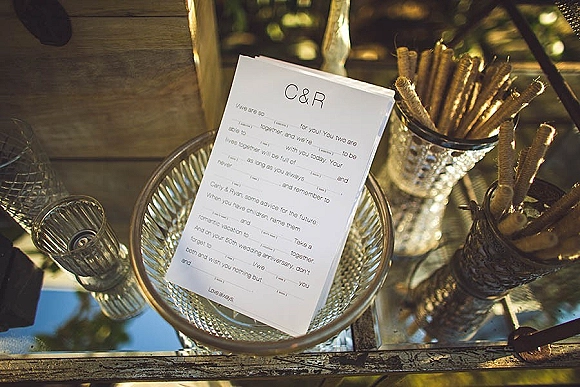 C & R
I/we are so for you! You two are
together, and we're to be
able to with you today. Your
lives together will be full of and
never as long as you always
and remember to
Carly & Ryan, some advice for the future:
When you have children, name them
and Take a
romantic vacation to together.
And on your 50th wedding anniversary, don't
forget to I/we you
both and wish you nothing but
and
Love always,